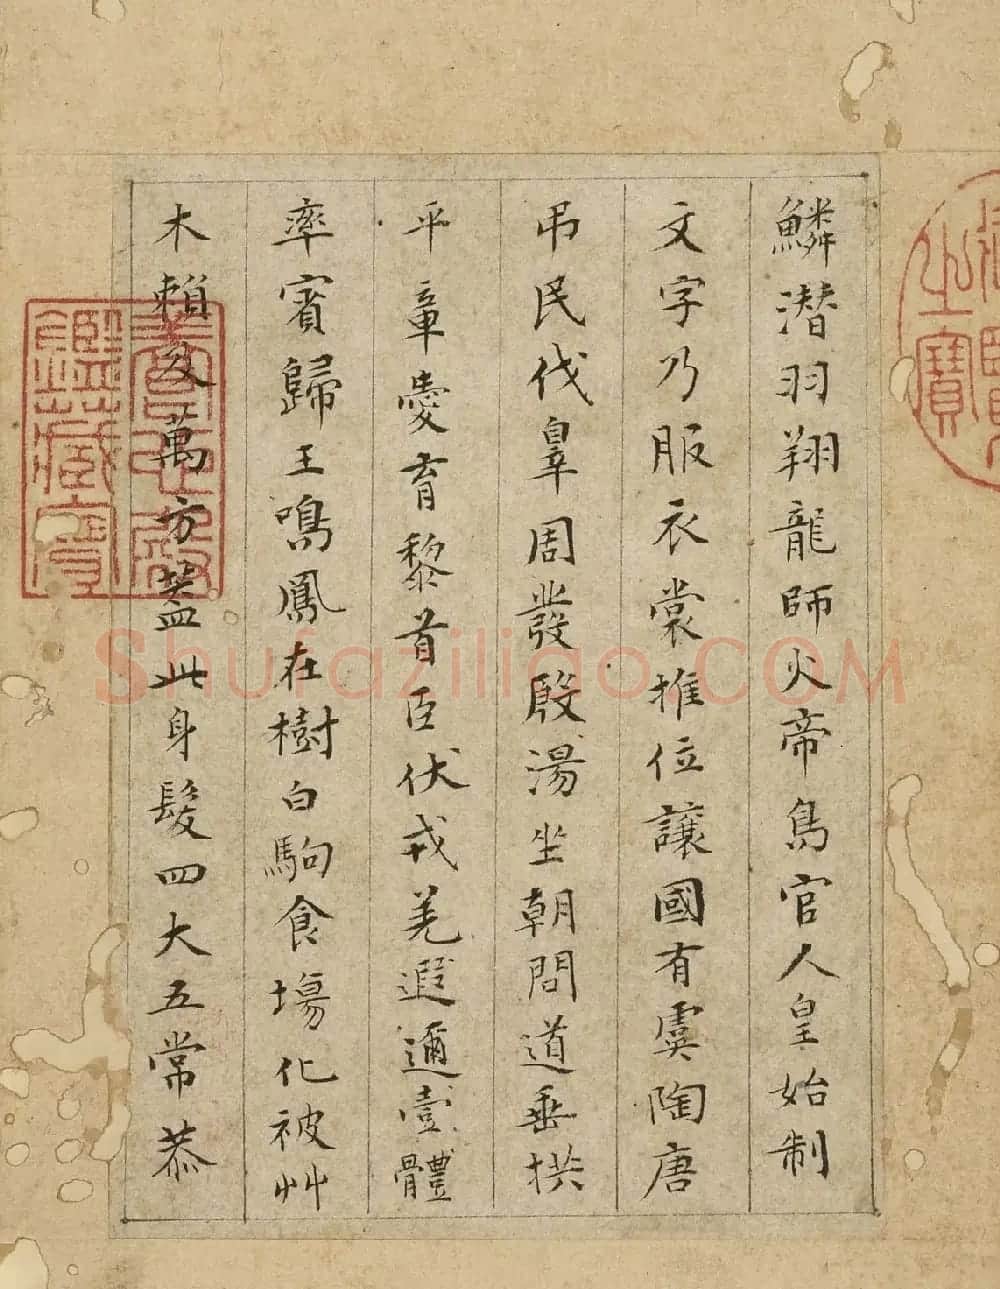 鱗潛羽翔龍師火帝鳥官人皇始制
文字乃服衣裳推位讓國有虞陶唐
弔民伐辠周發殷湯坐朝問道垂拱
平章愛育黎首臣伏戎羌遐邇壹體
率賓歸王鳴鳳在樹白駒食場化被艸
木賴及萬方蓋此身髮四大五常恭
Shufaziliao.COM